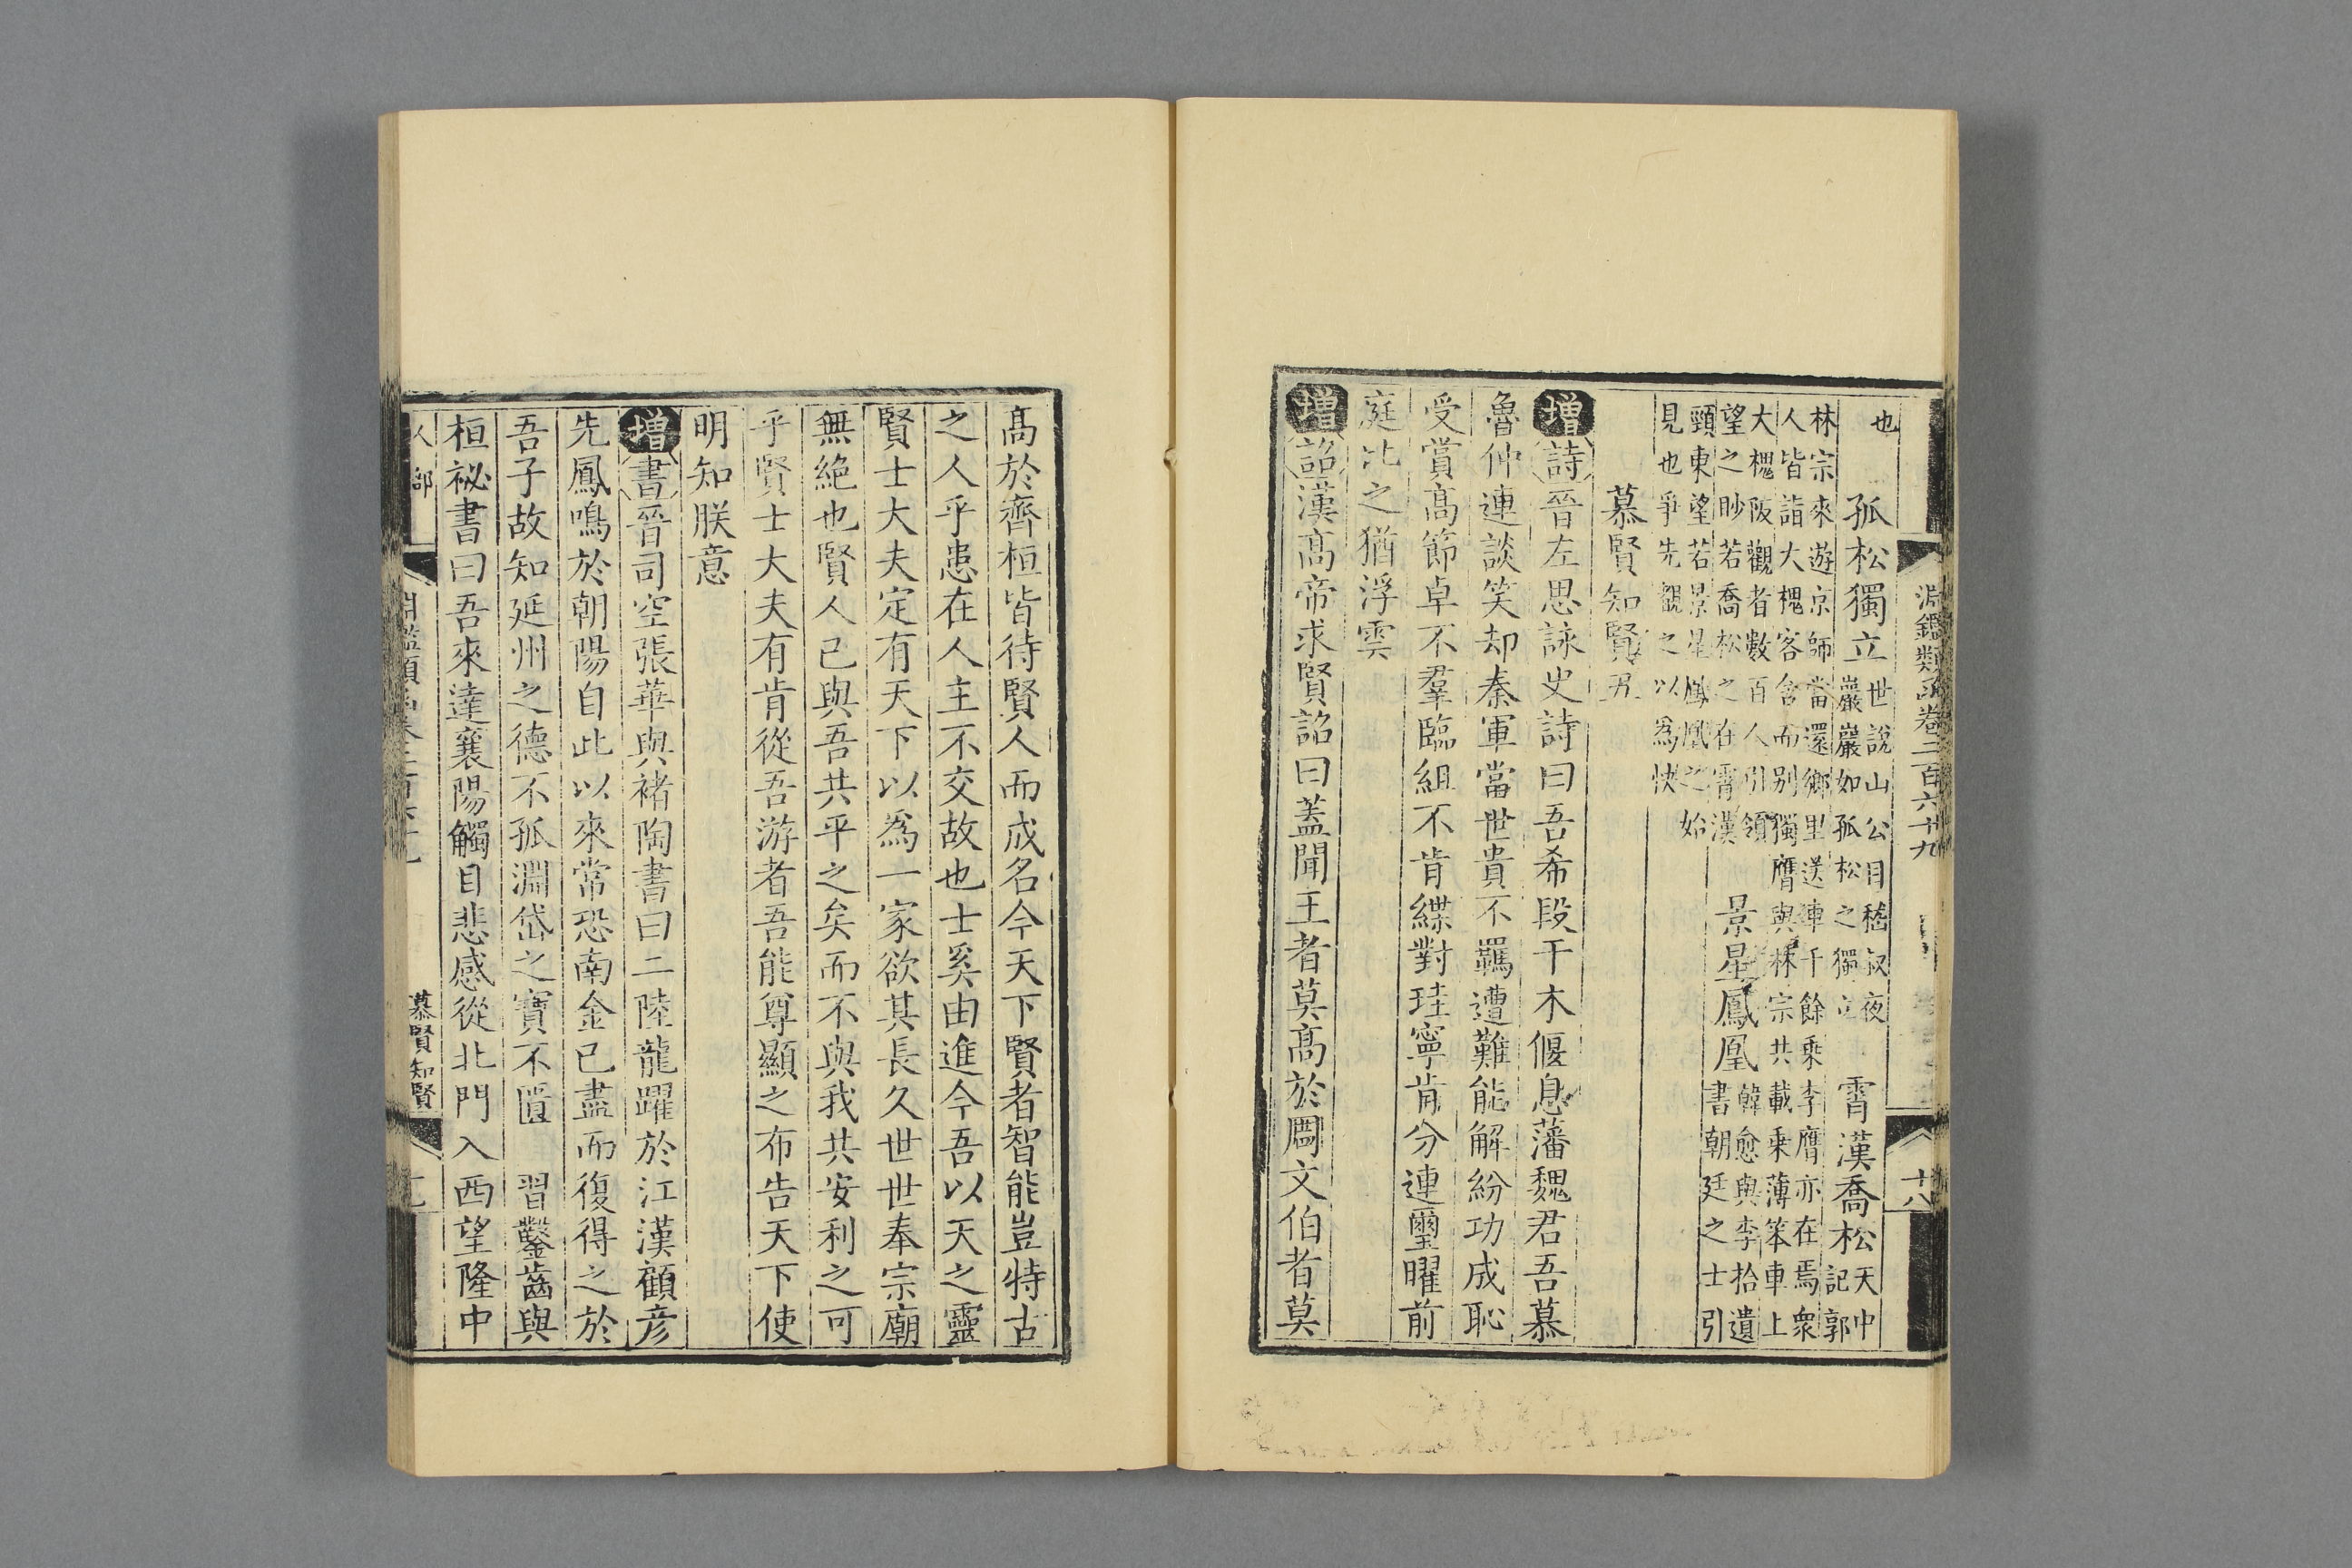 淵鑑類函卷二百六十九 十八
也 孤松獨立 世說山公目嵇叔夜
巖巖如孤松之獨立 霄漢喬松 天中
記郭
林宗來遊京師當還鄉里送車千餘乘李膺亦在焉衆
人皆詣大槐客舍而别獨膺與林宗共載乘薄笨車上
大槐阪觀者數百人引領
望之眇若喬松之在霄漢 景星鳳凰 韓愈與李拾遺
書朝廷之士引
頸東望若景星鳳凰之始
見也爭先覩之以為快
慕賢知賢五
增詩晉左思詠史詩曰吾希段干木偃息藩魏君吾慕
魯仲連談笑却秦軍當世貴不羈遭難能解紛功成恥
受賞高節卓不羣臨組不肯緤對珪寧肯分連璽曜前
庭比之猶浮雲
增詔漢高帝求賢詔曰蓋聞王者莫高於周文伯者莫
高於齊桓皆待賢人而成名今天下賢者智能豈特古
之人乎患在人主不交故也士奚由進今吾以天之靈
賢士大夫定有天下以為一家欲其長久世世奉宗廟
無絶也賢人已與吾共平之矣而不與我共安利之可
乎賢士大夫有肯從吾游者吾能尊顯之布告天下使
明知朕意
增書晉司空張華與褚陶書曰二陸龍躍於江漢顧彦
先鳳鳴於朝陽自此以來常恐南金已盡而復得之於
吾子故知延州之德不孤淵岱之寶不匱 習鑿齒與
桓祕書曰吾來達襄陽觸目悲感從北門入西望隆中
人部 淵鑑類函卷二百六十九 慕賢知賢 十九